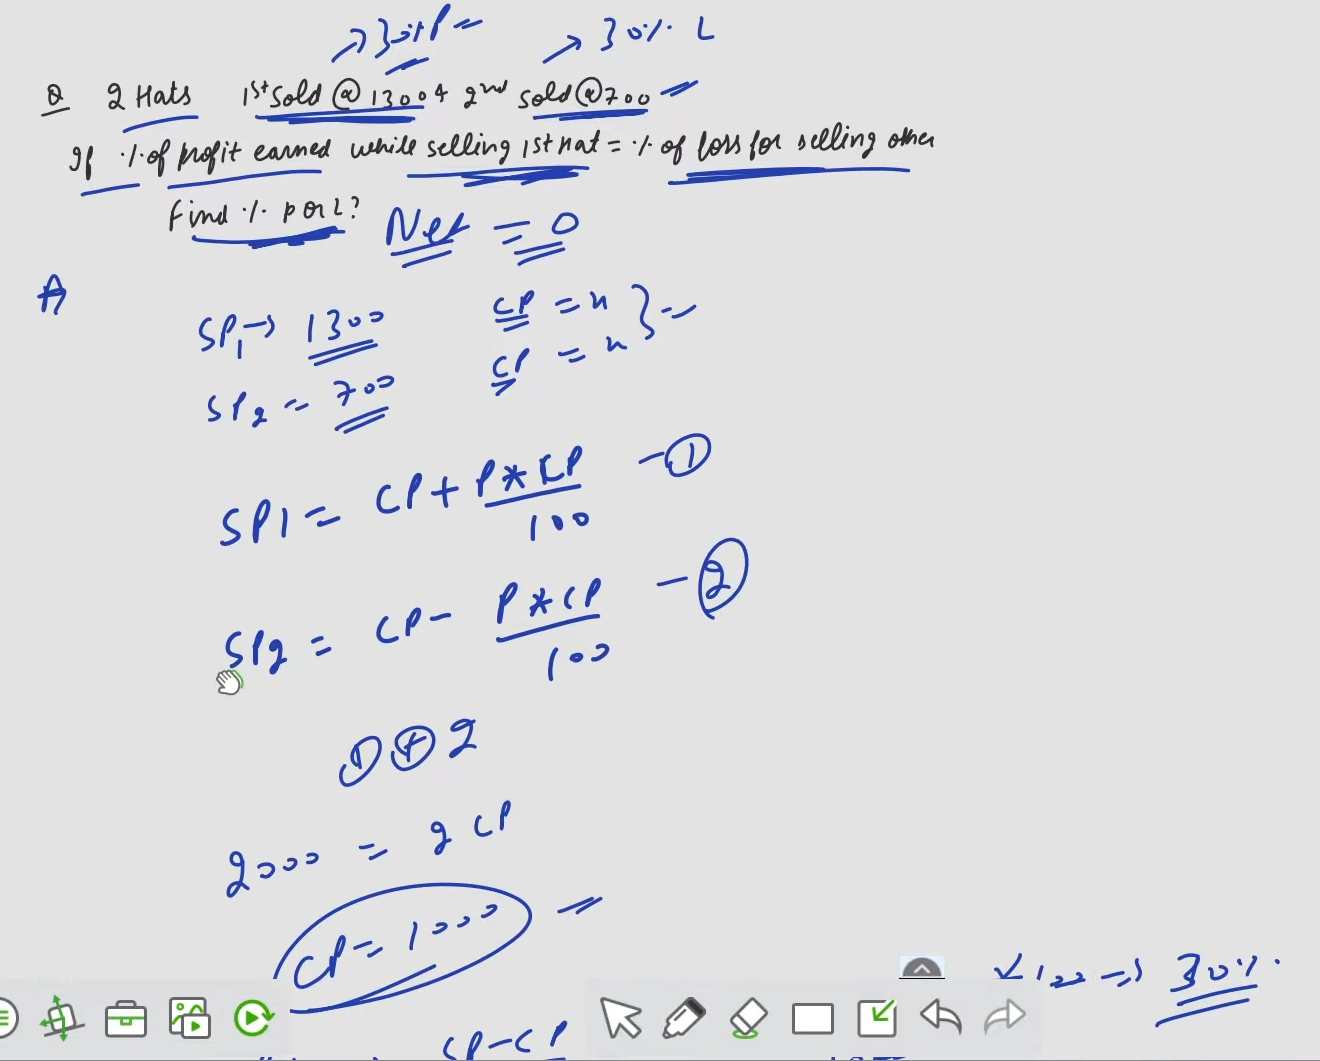 → 30% P → 30% L
Q 2 Hats 1st sold @ 1300 & 2nd sold @ 700
If % of profit earned while selling 1st hat = % of loss for selling other
Find % P or L?
Net = 0
A
SP1 → 1300 CP = x
SP2 = 700 CP = x
SP1 = CP + P * CP / 100 - ①
SP2 = CP - P * CP / 100 - ②
① + 2
2000 = 2 CP
CP = 1000
100 → 30%
SP - CP